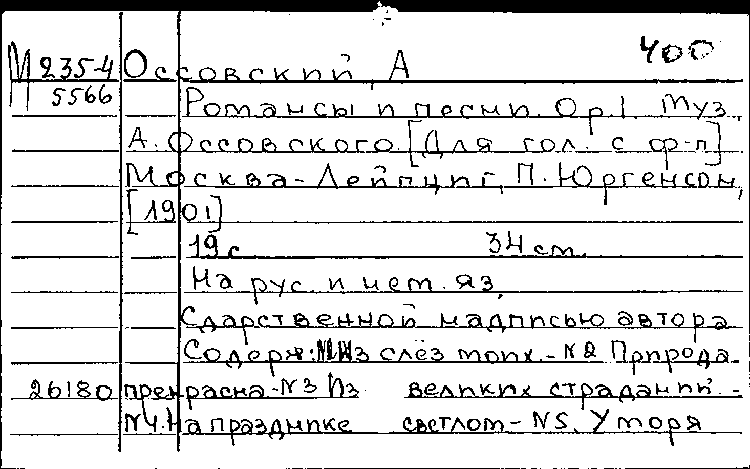 400
М 235-4 Оссовский, А
5566 Романсы и песни. Ор.1. Муз.
А. Оссовского. [Для гол. с ф-п]
Москва-Лейпциг, П. Юргенсон,
[1901]
19 с 34 см.
На рус. и нем. яз.
С дарственной надписью автора
Содерж: №1 Из слёз моих.- №2 Природа
26180 прекрасна-№3 Из великих страданий.-
№4. На празднике светлом- №5. У моря